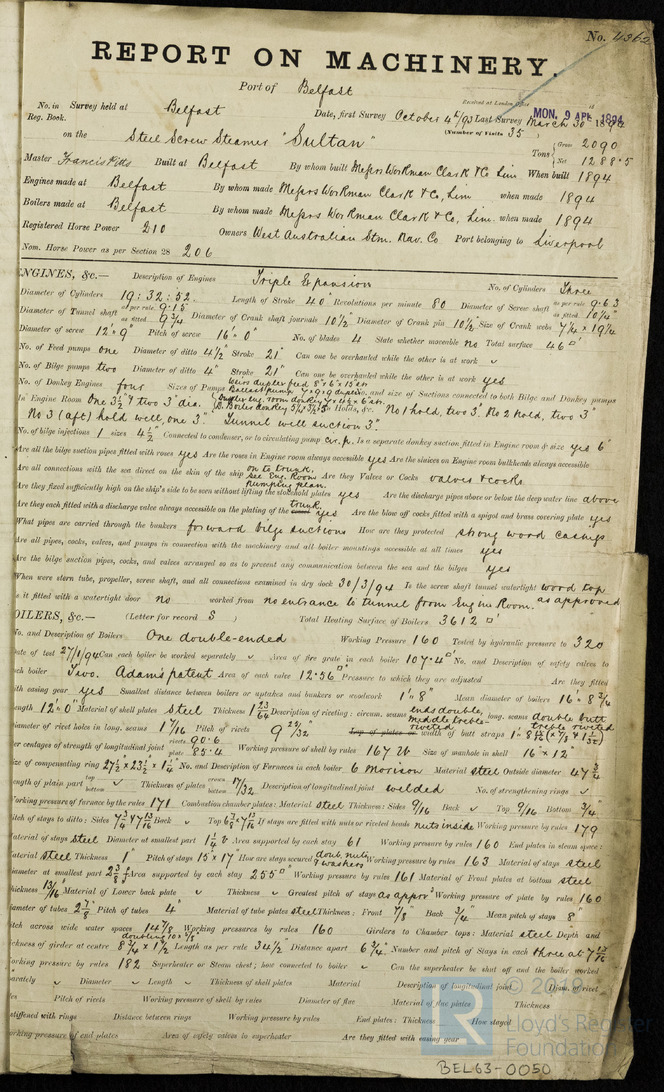 No. 4362
REPORT ON MACHINERY.
Port of Belfast
Received at London Office MON. 9 APR 1894
No. in Reg. Book. Survey held at Belfast Date, first Survey October 4th/93 Last Survey March 30th 1894
(Number of Visits 35)
on the Steel Screw Steamer "Sultan" Tons Gross 2090 Net 1288.5
Master Francis Pitts Built at Belfast By whom built Messrs Workman Clark & Co Lim When built 1894
Engines made at Belfast By whom made Messrs Workman Clark & Co, Lim when made 1894
Boilers made at Belfast By whom made Messrs Workman Clark & Co, Lim. when made 1894
Registered Horse Power 210 Owners West Australian Stm. Nav. Co Port belonging to Liverpool
Nom. Horse Power as per Section 28 206
ENGINES, &c.— Description of Engines Triple Expansion No. of Cylinders Three
Diameter of Cylinders 19:32:52. Length of Stroke 40" Revolutions per minute 80 Diameter of Screw shaft as per rule 9.63 as fitted 10 1/4"
Diameter of Tunnel shaft as per rule 9.15 as fitted 9 3/4 Diameter of Crank shaft journals 10 1/2" Diameter of Crank pin 10 1/2" Size of Crank webs 7 1/4 x 19 1/4
Diameter of screw 12' 9" Pitch of screw 16' 0" No. of blades 4 State whether moveable no Total surface 46 □'
No. of Feed pumps one Diameter of ditto 4 1/2 Stroke 21" Can one be overhauled while the other is at work
No. of Bilge pumps two Diameter of ditto 4" Stroke 21" Can one be overhauled while the other is at work yes
No. of Donkey Engines four Sizes of Pumps Weirs duplex feed 8" x 6" x 15" Ballast pump 7 x 9 x 9 duplex and size of Suctions connected to both Bilge and Donkey pumps
In Engine Room One 3 1/2" & two 3" dia. Holds, &c. No 1 hold, two 3". No 2 hold, two 3"
No 3 (aft) hold well, one 3". Tunnel well suction 3".
No. of bilge injections 1 sizes 4 1/2" Connected to condenser, or to circulating pump cir. p. Is a separate donkey suction fitted in Engine room & size yes 6"
Are all the bilge suction pipes fitted with roses yes Are the roses in Engine room always accessible yes Are the sluices on Engine room bulkheads always accessible
Are all connections with the sea direct on the skin of the ship on to trunk. see Eng. Room Pumping plan. Are they Valves or Cocks valves & cocks
Are they fixed sufficiently high on the ship's side to be seen without lifting the stokehold plates yes Are the discharge pipes above or below the deep water line above
Are they each fitted with a discharge valve always accessible on the plating of the trunk yes Are the blow off cocks fitted with a spigot and brass covering plate yes
What pipes are carried through the bunkers forward bilge suctions How are they protected strong wood casings
Are all pipes, cocks, valves, and pumps in connection with the machinery and all boiler mountings accessible at all times yes
Are the bilge suction pipes, cocks, and valves arranged so as to prevent any communication between the sea and the bilges yes
When were stern tube, propeller, screw shaft, and all connections examined in dry dock 30/3/94 Is the screw shaft tunnel watertight wood top as approved
is it fitted with a watertight door no worked from no entrance to tunnel from Engine Room.
BOILERS, &c.— (Letter for record S) Total Heating Surface of Boilers 3612 □'
No. and Description of Boilers One double-ended Working Pressure 160 Tested by hydraulic pressure to 320
Date of test 27/1/94 Can each boiler be worked separately Area of fire grate in each boiler 107.4 □' No. and Description of safety valves to
each boiler Two. Adams patent Area of each valve 12.56 □" Pressure to which they are adjusted Are they fitted
with easing gear yes Smallest distance between boilers or uptakes and bunkers or woodwork 1' 8" Mean diameter of boilers 16' 8 3/4
Length 12' 0" Material of shell plates steel Thickness 1 23/64 Description of riveting: circum. seams ends double, middle treble riveted long. seams double butt treble riveted
Diameter of rivet holes in long. seams 1 7/16 Pitch of rivets 9 29/32 width of butt straps
Per centages of strength of longitudinal joint rivets 90.6 plate 85.4 Working pressure of shell by rules 167 lb Size of manhole in shell 16" x 12"
Size of compensating ring 27 1/2 x 23 1/2 x 1 1/4 No. and Description of Furnaces in each boiler 6 morison Material steel Outside diameter 47 3/4
Length of plain part top bottom Thickness of plates crown bottom 17/32 Description of longitudinal joint welded No. of strengthening rings
Working pressure of furnace by the rules 171 Combustion chamber plates: Material steel Thickness: Sides 9/16 Back Top 9/16 Bottom 3/4"
Pitch of stays to ditto: Sides 7 3/4 x 7 13/16 Back Top If stays are fitted with nuts or riveted heads nuts inside Working pressure by rules 179
Material of stays steel Diameter at smallest part Area supported by each stay 61 Working pressure by rules 160 End plates in steam space:
Material steel Thickness 1" Pitch of stays 15" x 17 How are stays secured doub. nuts & washers Working pressure by rules 163 Material of stays steel
Diameter at smallest part Area supported by each stay 255 □" Working pressure by rules 161 Material of Front plates at bottom steel
Thickness 13/16 Material of Lower back plate Thickness Greatest pitch of stays as appro'd Working pressure of plate by rules 160
Diameter of tubes 2 7/8 Pitch of tubes 4" Material of tube plates steel Thickness: Front 7/8" Back 3/4" Mean pitch of stays 8"
Pitch across wide water spaces 14 7/8 Working pressures by rules 160 Girders to Chamber tops: Material steel Depth and
thickness of girder at centre 8 3/4 x 1 1/2 Length as per rule 34 1/2 Distance apart 6 3/4" Number and pitch of Stays in each three at 7 13/16
Working pressure by rules 182 Superheater or Steam chest; how connected to boiler Can the superheater be shut off and the boiler worked
separately Diameter Length Thickness of shell plates Material Description of longitudinal joint Diam. of rivet
holes Pitch of rivets Working pressure of shell by rules Diameter of flue Material of flue plates Thickness
stiffened with rings Distance between rings Working pressure by rules End plates: Thickness How stayed
Working pressure of end plates Area of safety valves to superheater Are they fitted with easing gear
Lloyd's Register
Foundation
BEL63-0050